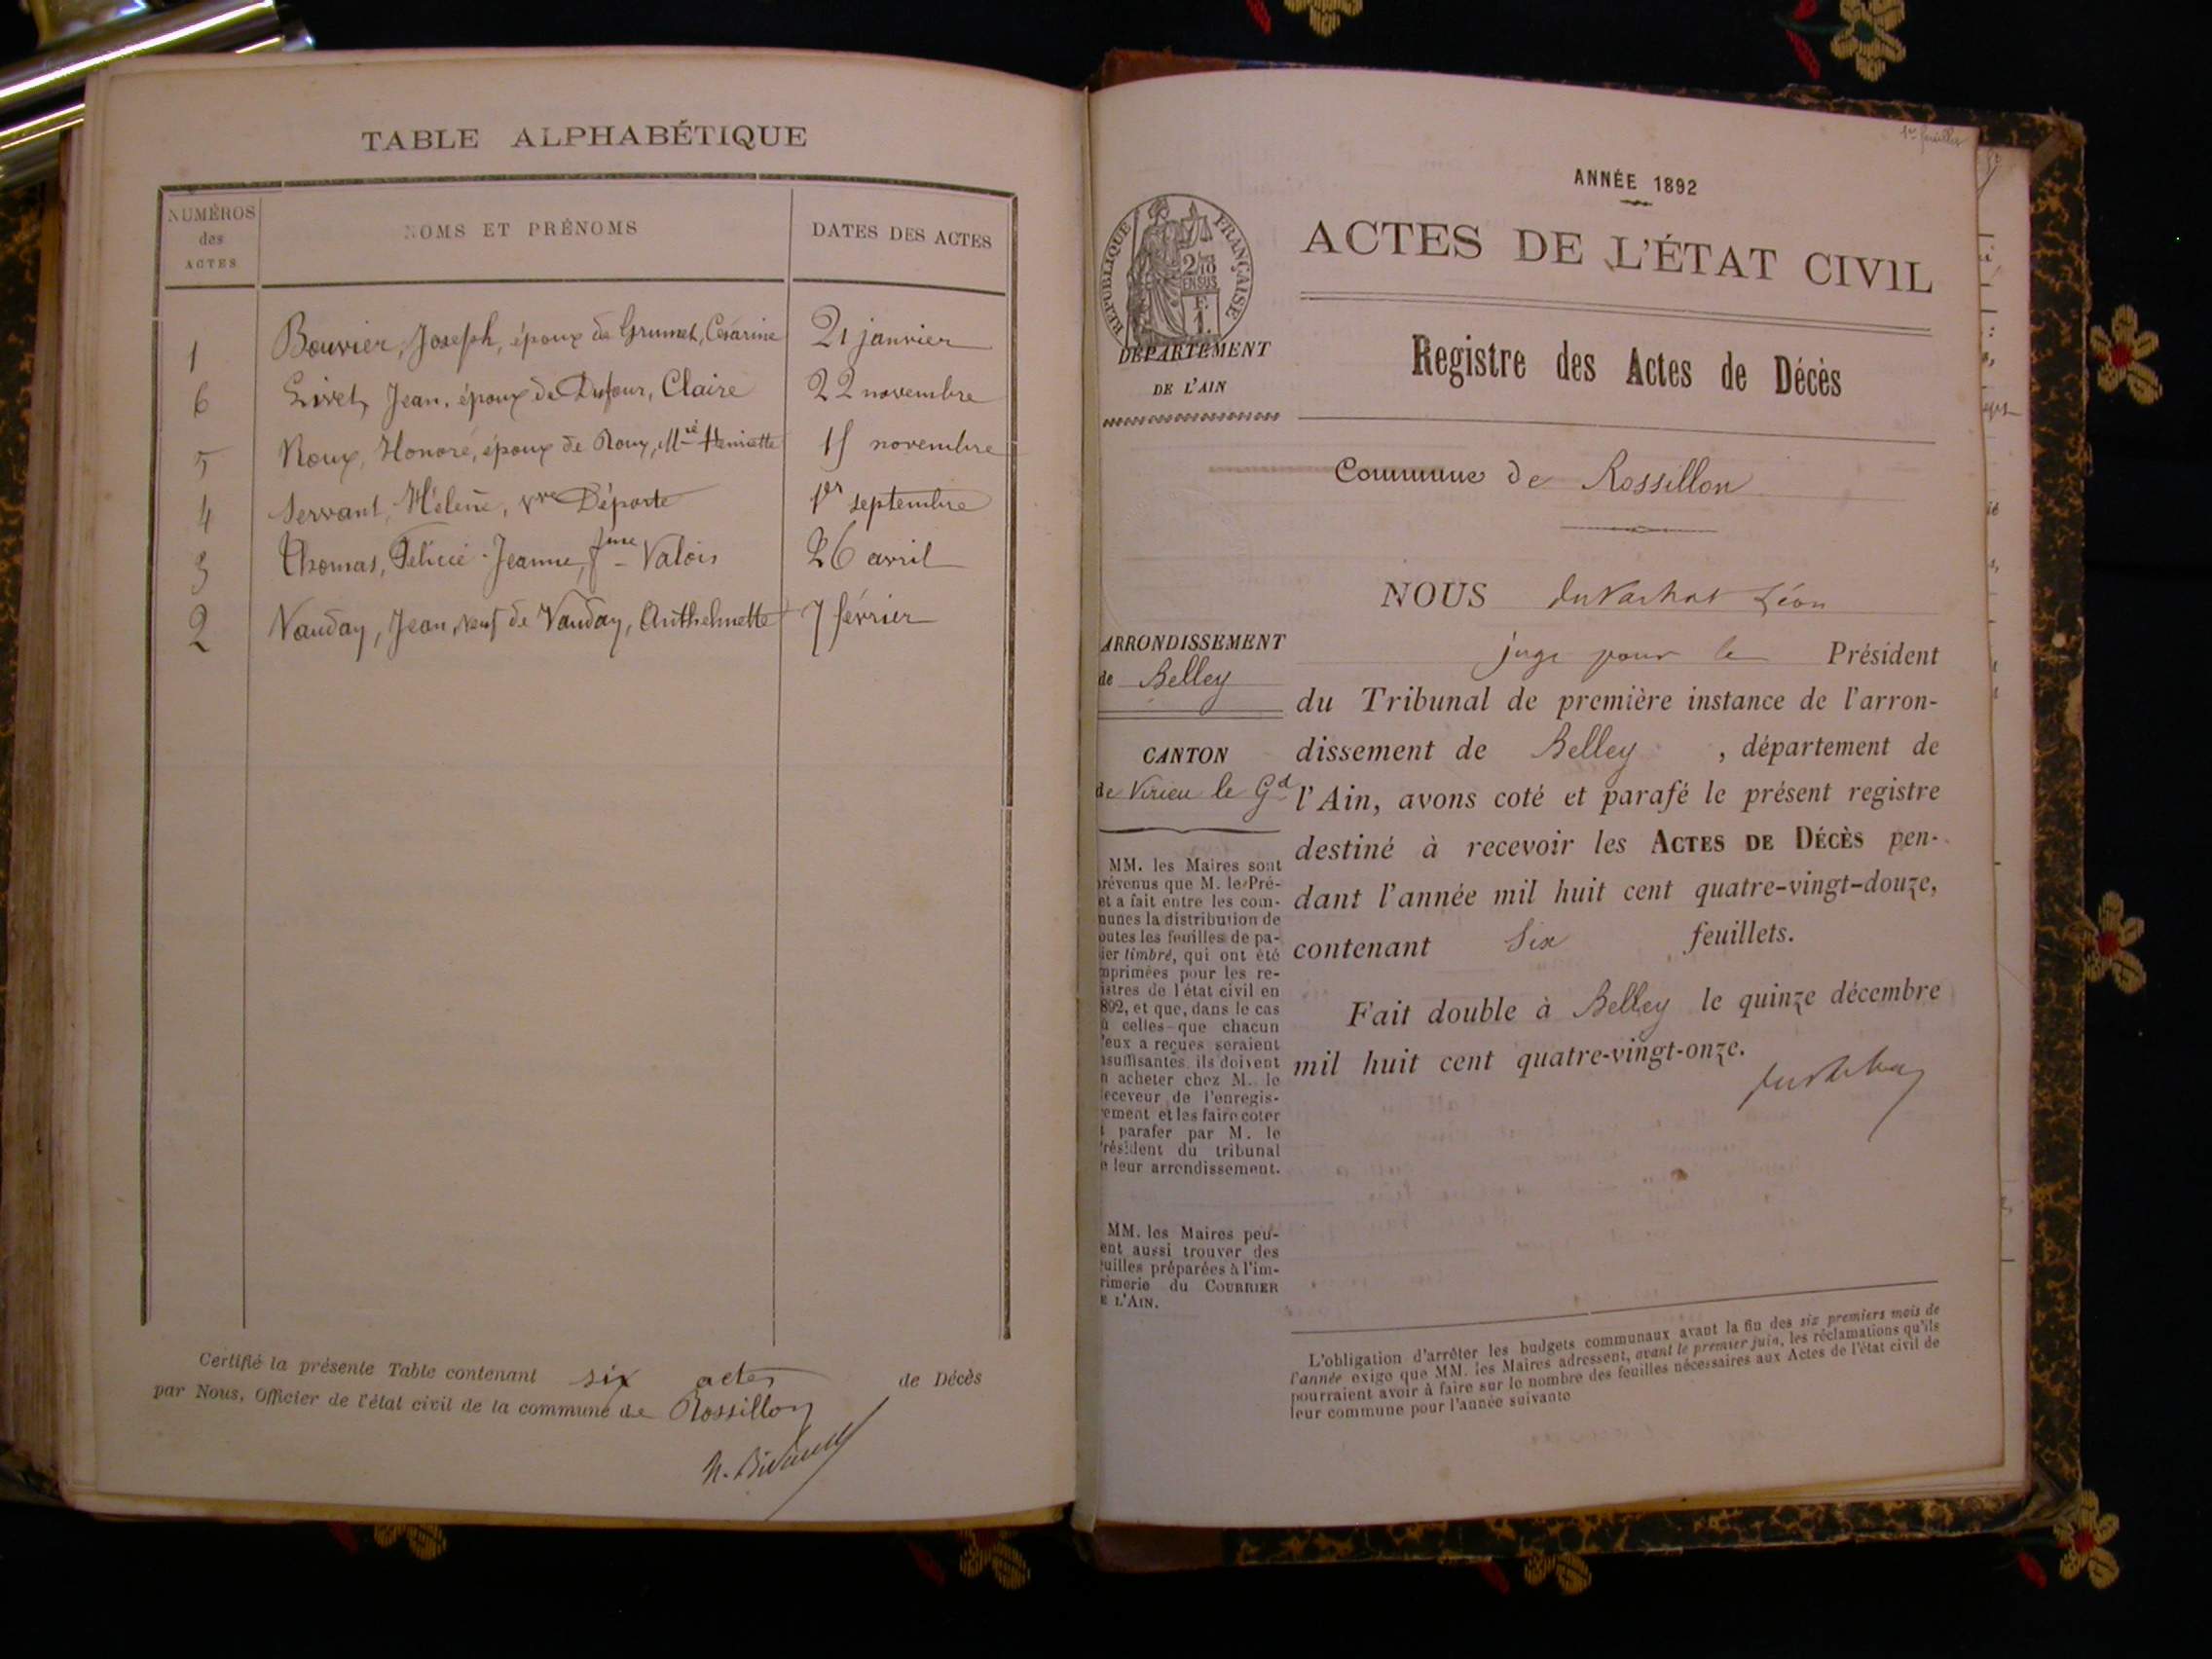 TABLE ALPHABÉTIQUE
NUMÉROS des ACTES
NOMS ET PRÉNOMS
DATES DES ACTES
1 Bouvier, Joseph, époux de Grumet, Césarine 21 janvier
6 Livet, Jean, époux de Dufour, Claire 22 novembre
5 Roux, Honoré, époux de Roux, Mie Henriette 15 novembre
4 Servant, Hélène, vve Déporte 1er septembre
3 Thomas, Félicie Jeanne, fme Valois 26 avril
2 Vauday, Jean, veuf de Vauday, Anthelmette 7 février
Certifié la présente Table contenant six actes de Décès
par Nous, Officier de l'état civil de la commune de Rossillon
1er feuillet
ANNÉE 1892
ACTES DE L'ÉTAT CIVIL
RÉPUBLIQUE FRANÇAISE
2/10 EN SUS
F.
1.
DÉPARTEMENT
DE L'AIN
Registre des Actes de Décès
Commune de Rossillon
NOUS Léon
juge pour le Président
du Tribunal de première instance de l'arron-
dissement de Belley , département de
l'Ain, avons coté et parafé le présent registre
destiné à recevoir les ACTES DE DÉCÈS pen-
dant l'année mil huit cent quatre-vingt-douze,
contenant Six feuillets.
Fait double à Belley le quinze décembre
mil huit cent quatre-vingt-onze.
ARRONDISSEMENT
de Belley
CANTON
de Virieu le Gd
MM. les Maires sont
prévenus que M. le Pré-
et a fait entre les com-
munes la distribution de
outes les feuilles de pa-
ier timbré, qui ont été
mprimées pour les re-
istres de l'état civil en
892, et que, dans le cas
ù celles que chacun
'eux a reçues seraient
nsuffisantes, ils doivent
n acheter chez M. le
eceveur de l'enregis-
rement et les faire coter
t parafer par M. le
résident du tribunal
e leur arrondissement.
MM. les Maires peu-
ent aussi trouver des
uilles préparées à l'im-
rimerie du COURRIER
E L'AIN.
L'obligation d'arrêter les budgets communaux avant la fin des six premiers mois de
l'année exige que MM. les Maires adressent, avant le premier juin, les réclamations qu'ils
pourraient avoir à faire sur le nombre des feuilles nécessaires aux Actes de l'état civil de
leur commune pour l'année suivante